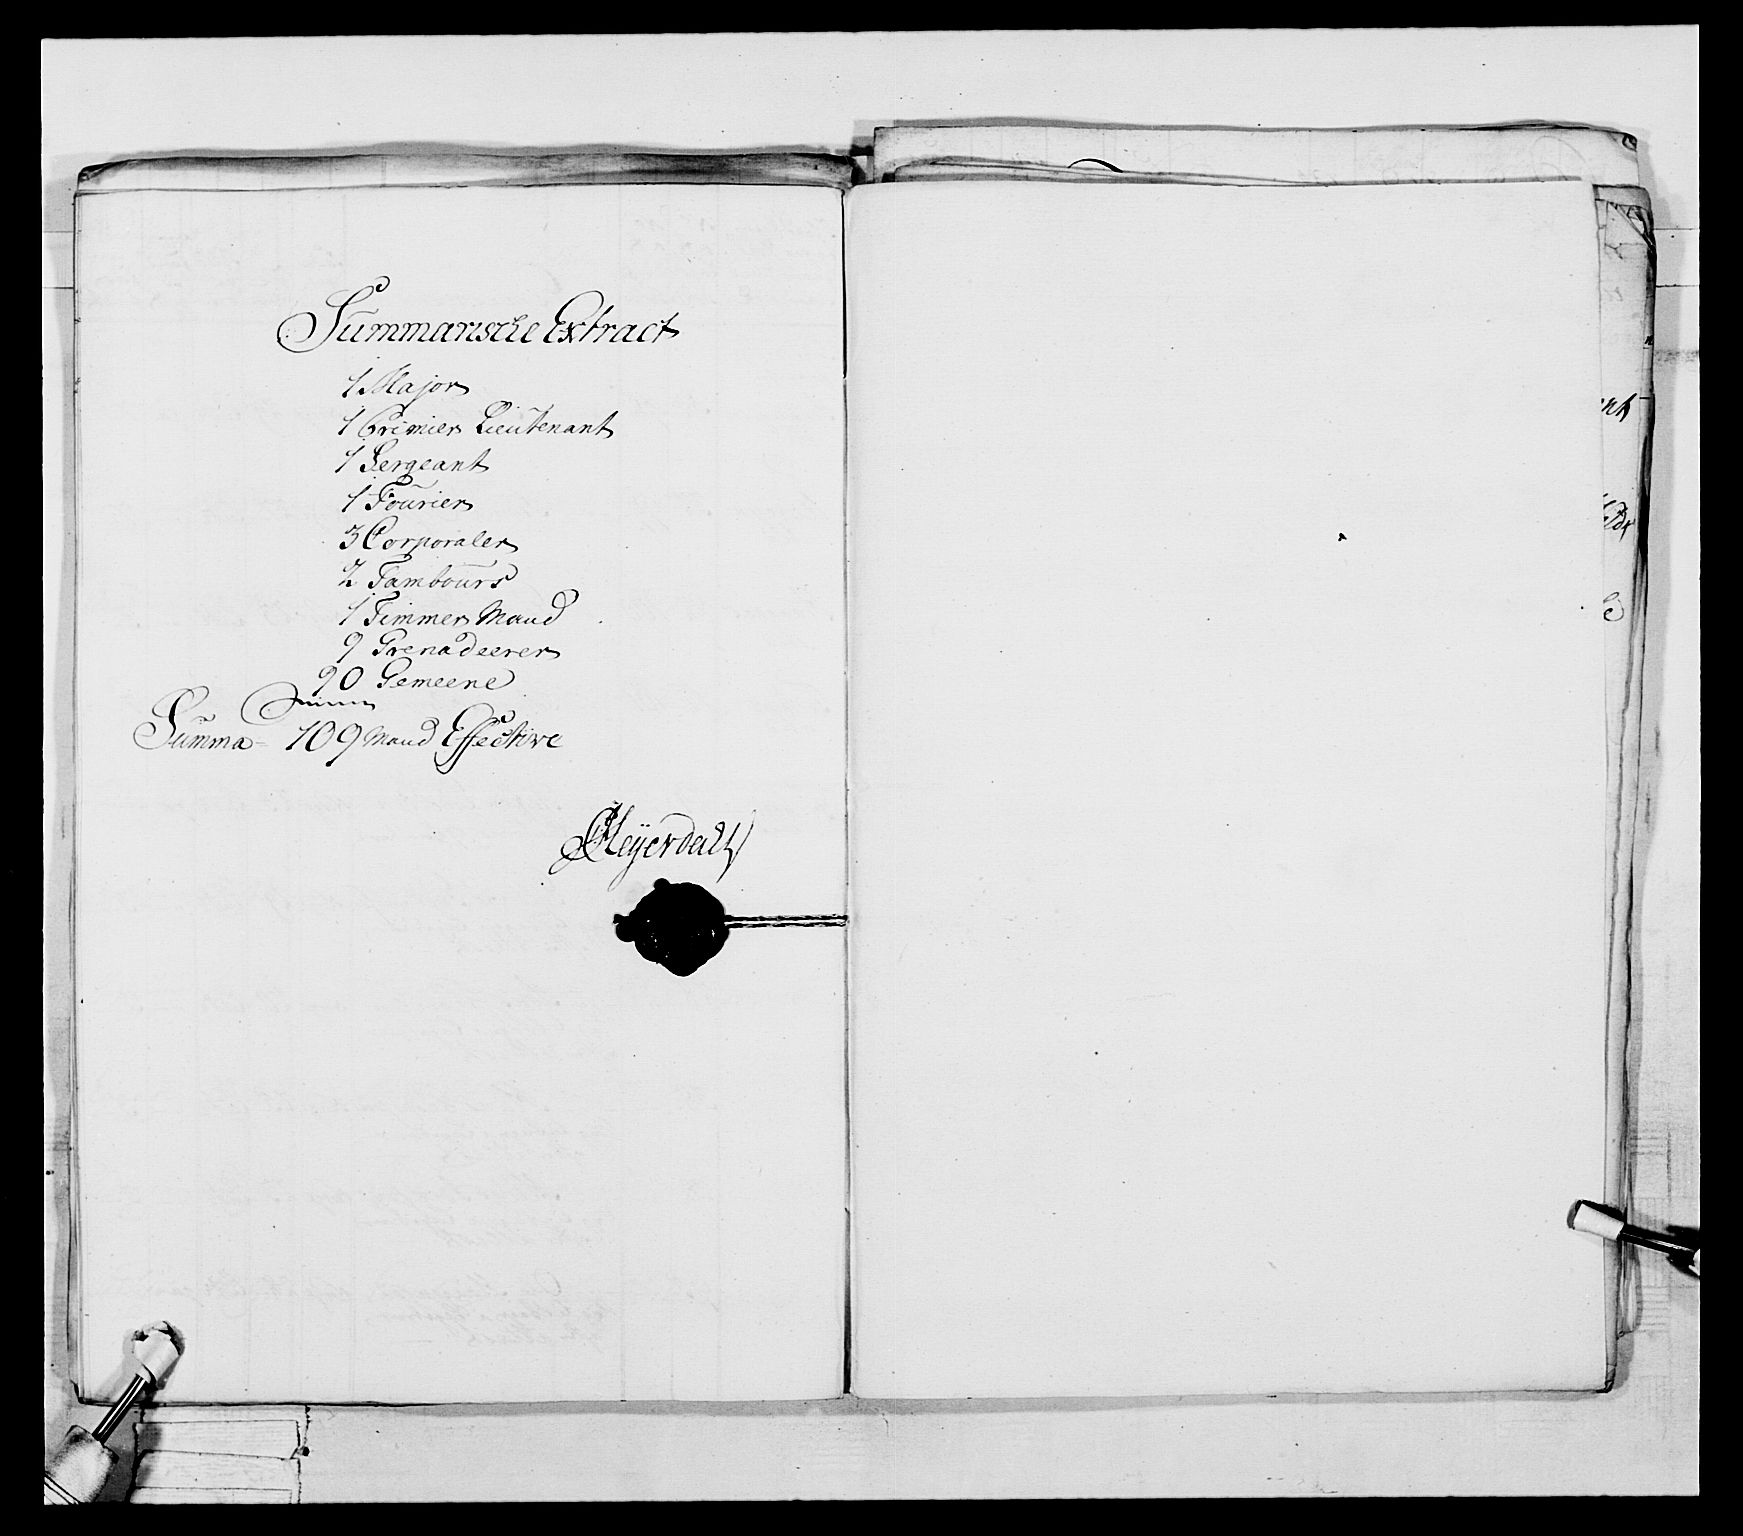 Summarische Extract
1 Major
1 Premier Lieutenant
1 Sergeant
1 Fourier
3 Corporaler
2 Tambours
1 Timmer Mand
9 Grenadeerer
90 Gemeene
Summa = 109 Mand Effective